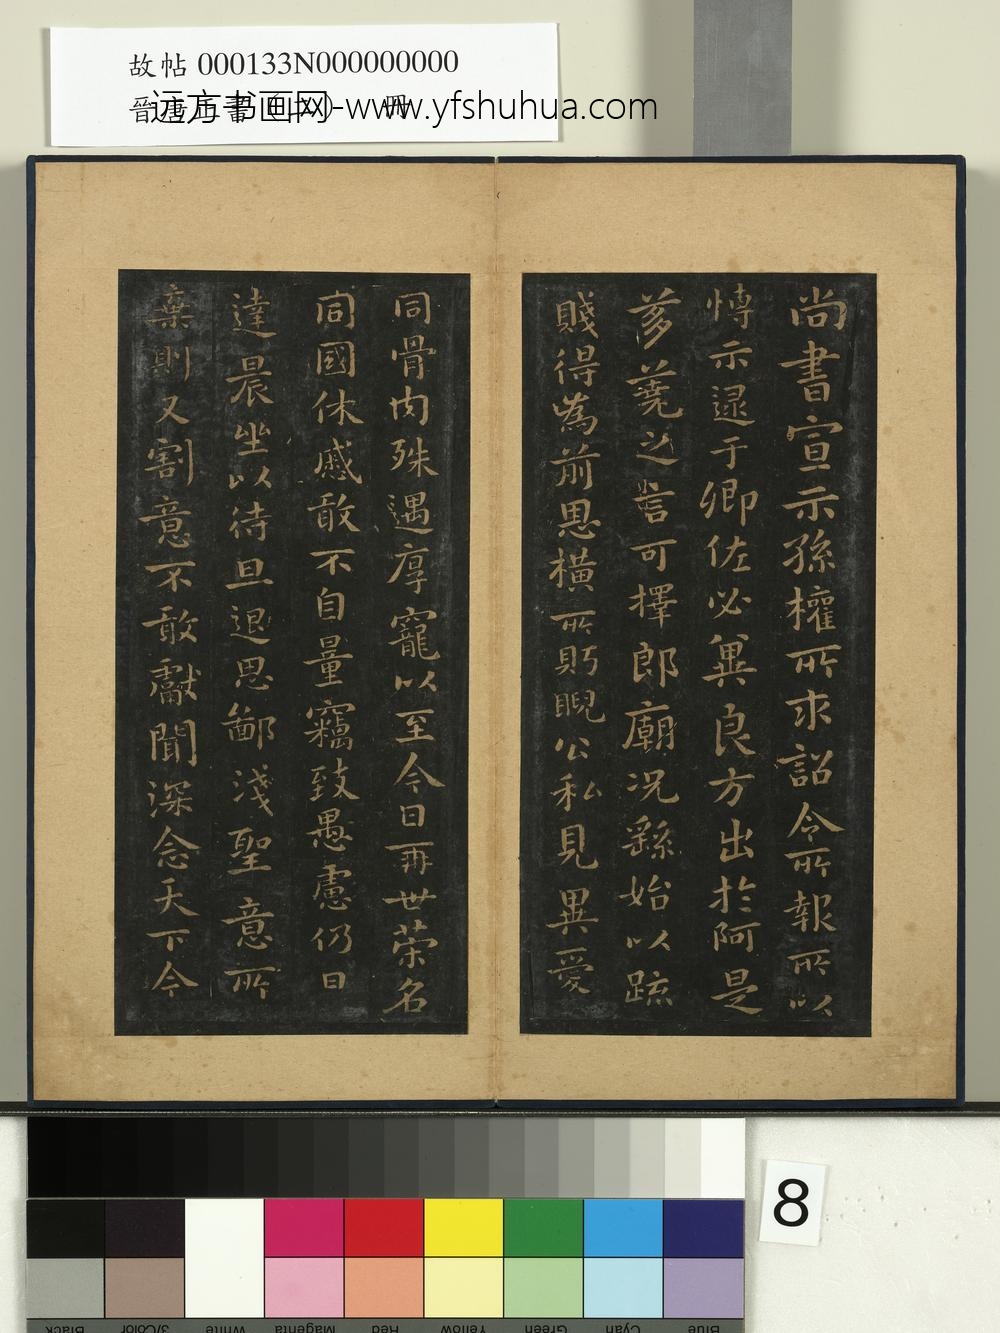 故帖 000133N000000000
远方书画网-www.yfshuhua.com
尚書宣示孫權所求詔令所報所以
博示逮于卿佐必兾良方出於阿是
芻蕘之言可擇郎廟況繇始以䟽
賤得為前恩橫所眄睨公私見異愛
同骨肉殊遇厚寵以至今日再世榮名
同國休慼敢不自量竊致愚慮仍日
達晨坐以待旦退思鄙淺聖意所
棄則又割意不敢獻聞深念天下今
8
Black
3/Color
White
Magenta
Red
Yellow
Green
Cyan
Blue